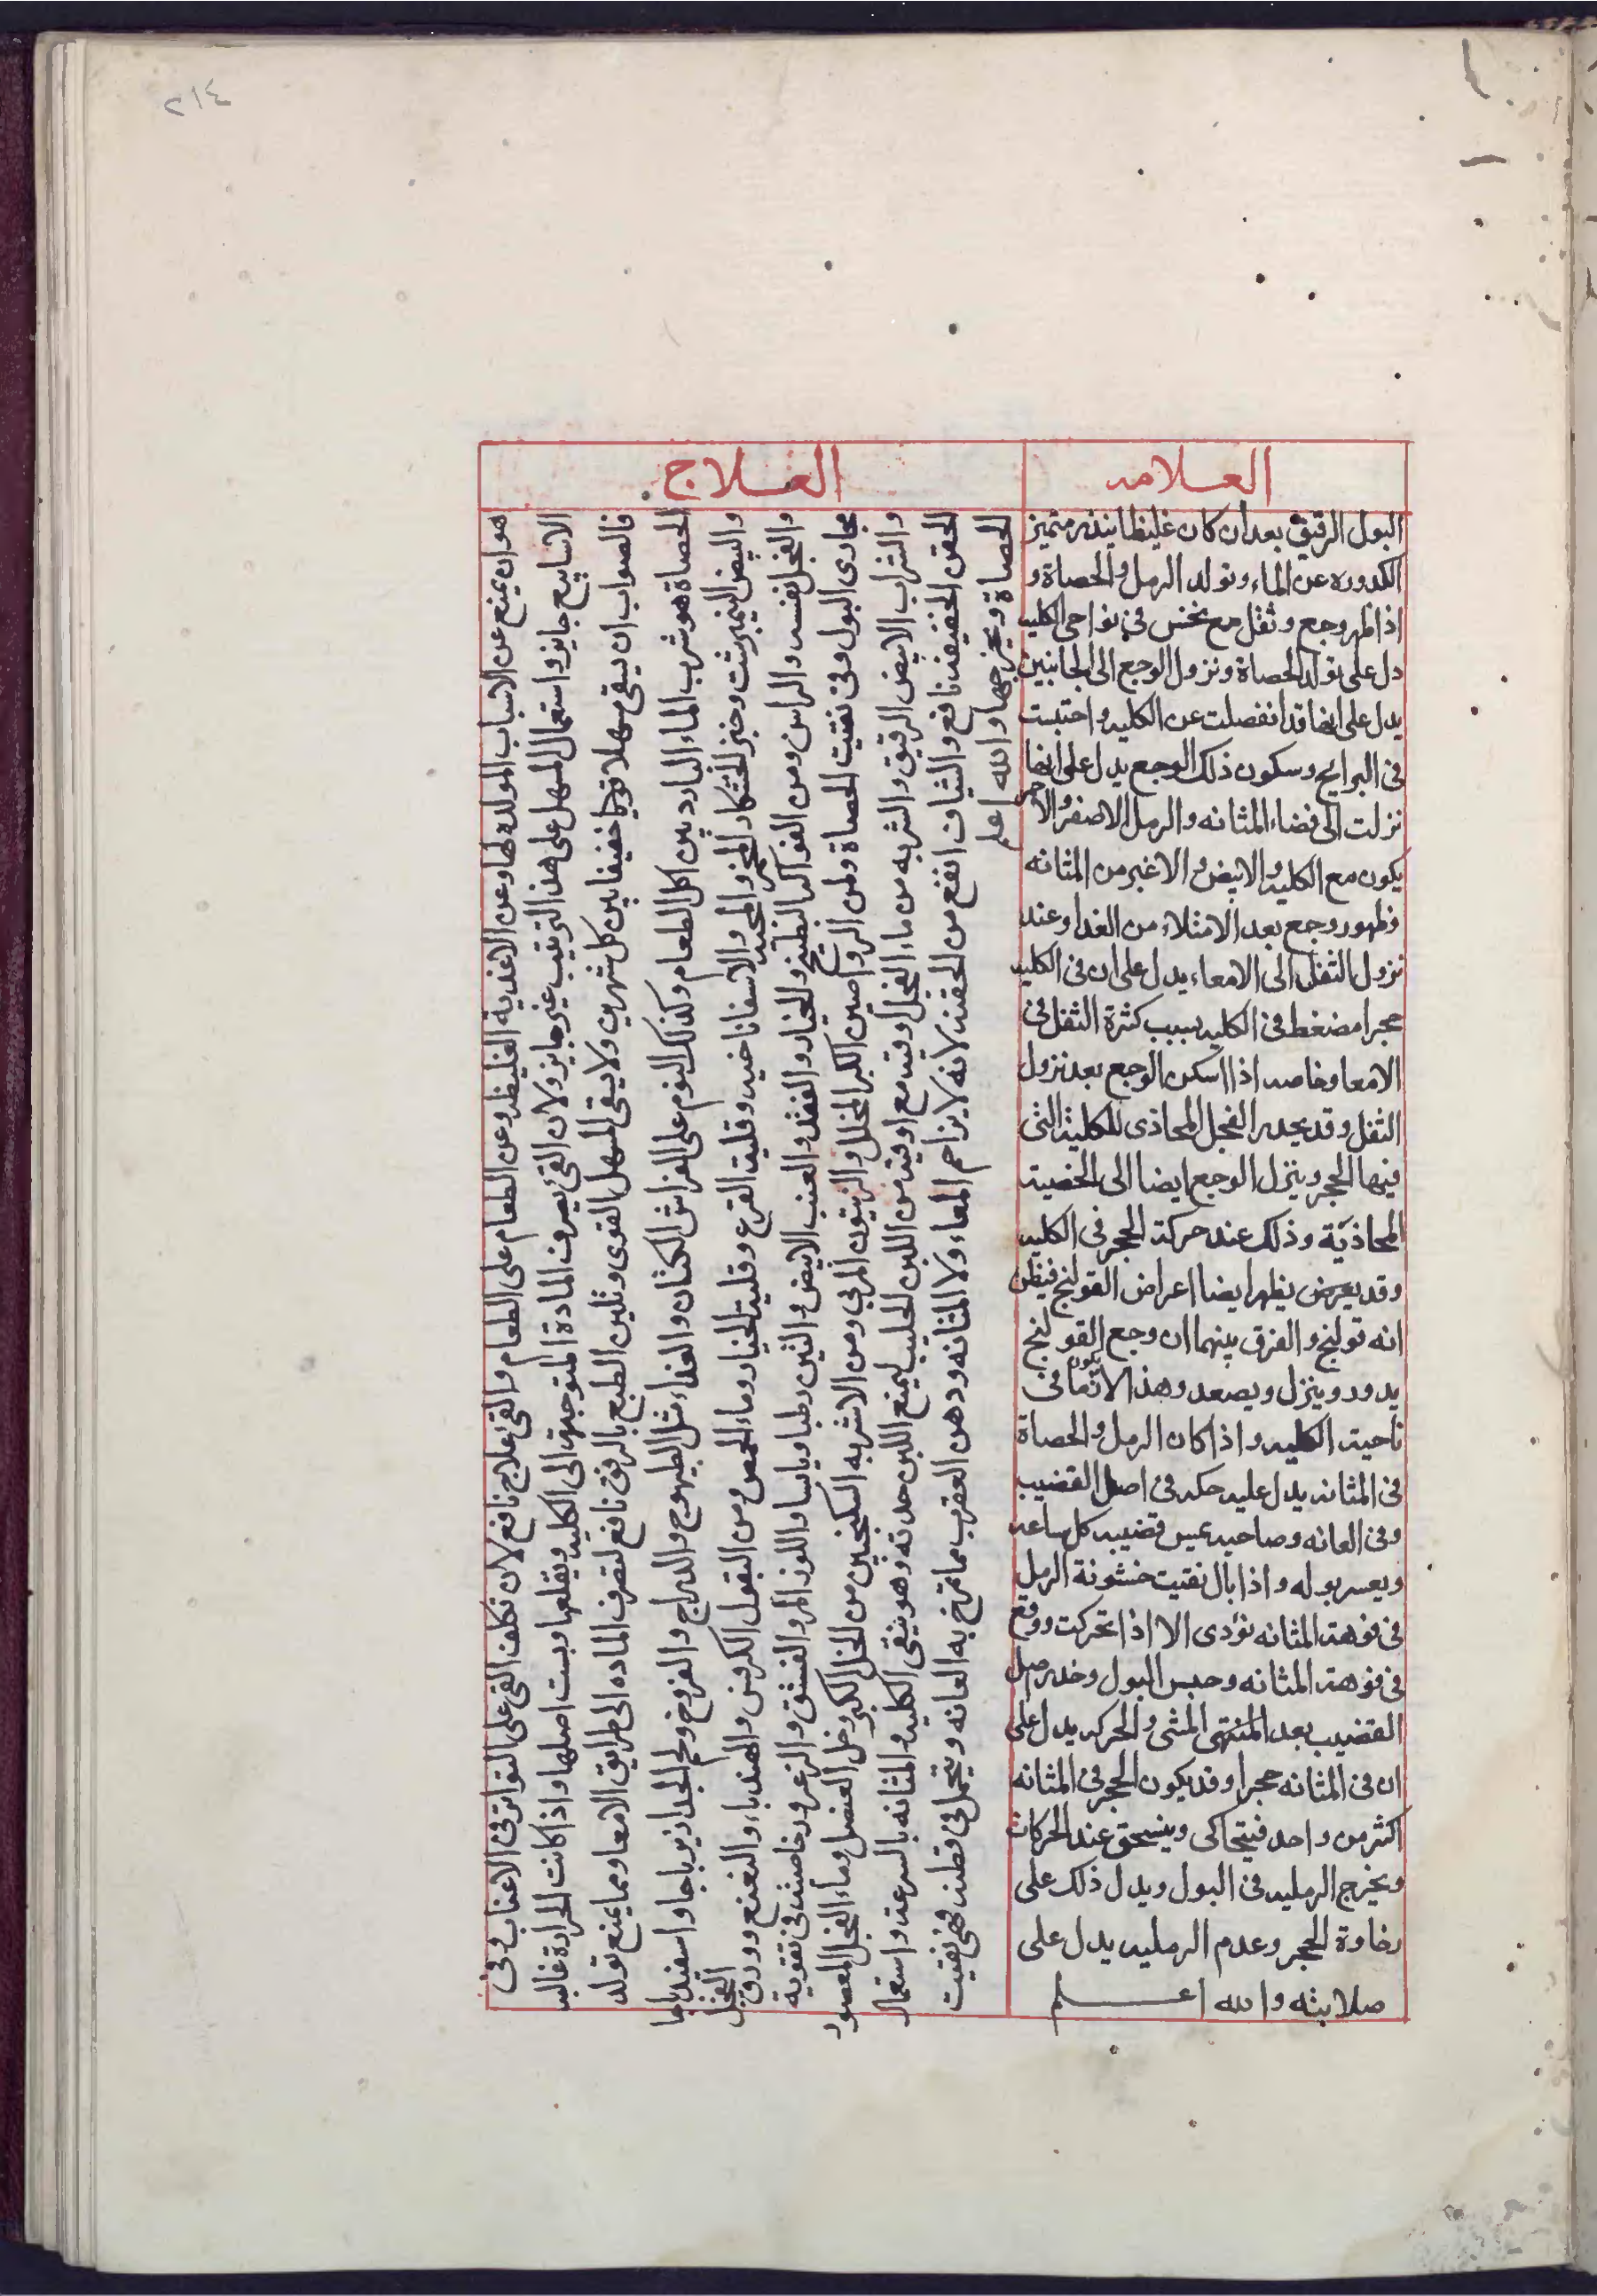 ٢١٤
العلامه
البول الرقيق بعد ان كان غليظا ينذر متميز
الكدوره عن الماء وتولد الرمل والحصاة و
اذا ظهر وجع وثقل مع نخس فى نواحى الكليه
دل على تولد الحصاة ونزول الوجع الى الجانبين
يدل على انها قد انفصلت عن الكليه واحتبست
فى البرابخ وسكون ذلك الوجع يدل على انها
نزلت الى فضاء المثانه والرمل الاصفر والاحمر
يكون مع الكليه والابيض والاغبر من المثانه
وظهور وجع بعد الامتلاء من الغدا وعند
نزول الثفل الى الامعاء يدل على ان فى الكليه
حجرا مضغط فى الكليه بسبب كثرة الثفل فى
الامعا وخاصه اذا سكن الوجع بعد نزول
الثفل وقد يخدر الفخد المحاذى للكلية التى
فيها الحجر وينزل الوجع ايضا الى الخصية
المحاذيّة وذلك عند حركة الحجر فى الكليه
وقد يعرض يظهر ايضا اعراض القولنج فيظن
انه قولنج والفرق بينهما ان وجع القولنج
يدور وينزل ويصعد وهذا لا يكون انما فى
ناحية الكليه واذا كان الرمل والحصاة
فى المثانه يدل عليه حكه فى اصل القضيب
وفى العانه وصاحبه يمس قضيبه كل ساعه
ويعسر بوله واذا بال بقيت خشونة الرمل
فى فوهة المثانه تؤدى الا اذا تحركت ووقع
فى فوهة المثانه وحبس البول وخدر ميل
القضيب بعد المنتهى المشى والحركه يدل على
ان فى المثانه حجرا وقد يكون الحجر فى المثانه
اكثر من واحد فيتحاكى وينسحق عند الحركات
ويخرج الرمليه فى البول ويدل ذلك على
رخاوة الحجر وعدم الرمليه يدل على
صلابته والله اعلم
العلاج
هو ان يمنع عن الاسباب المولده لها وعن الاغدية الغليظه وعن الطعام على الطعام والقى علاج نافع لان تكلف القى على التواتر فى الاغباب وفى
الاسابيع جايز واستعمال المسهل على هذا الترتيب غير جايز ولان القئ يصرف المادة المتوجهة الى الكليه ويقلعها وبست اصلها واذا كانت الحرارة غالبه
فالصواب ان يسقى مسهلا قويا خفيفا بين كل شهرين ولا يسقى المسهل القوى وتلين الطبع بالرفق نافع لتصرف الماده الى طرايق الامعا ومما يمنع تولد
الحصاة هو شرب الماء البارد بين اكل الطعام وكذلك النوم على الفراش الكتان والغداء مثل الطيهوج والدراج والفروخ ولحم الجدا زيرباجا واسفيدباجا
والبيض النيمبرشت وخبز الخشكار المختمر والاسفاناخيه وقلية القرع وقلية الخيار وماء الحمص ومن البقول الكرفس والهندباء والنعنع وورق الفجل
والفجل نفسه والراس ومن الفواكه البطيخ والخيار والقثد والعنب الابيض والتين رطبا ويابسا واللوز المر والفستق والزعرور خاصيته فى تقوية
مجارى البول وفى تفتيت الحصاة ومن الرواصين الكبر المخلل والزيتون المربى ومن الاشربه السكنجبين من الخل الكبر وخل العنصل وماء الفجل المعصور
والشراب الابيض الرقيق والشربه من ماء الفجل اوقيه مع اوقيه من اللبن الحليب ليمنع اللبن حدته وهو ينقى الكليه والمثانه بالسرعه واستعمال
الحقن الخفيفه نافع والشياف انفع من الحقنه لانه لا يزاحم المعاء ولا المثانه ودهن العقرب مما تمرخ به العانه ويتحمل فى قطنه فهى تفتيت
الحصاة ويخرجها والله اعلم